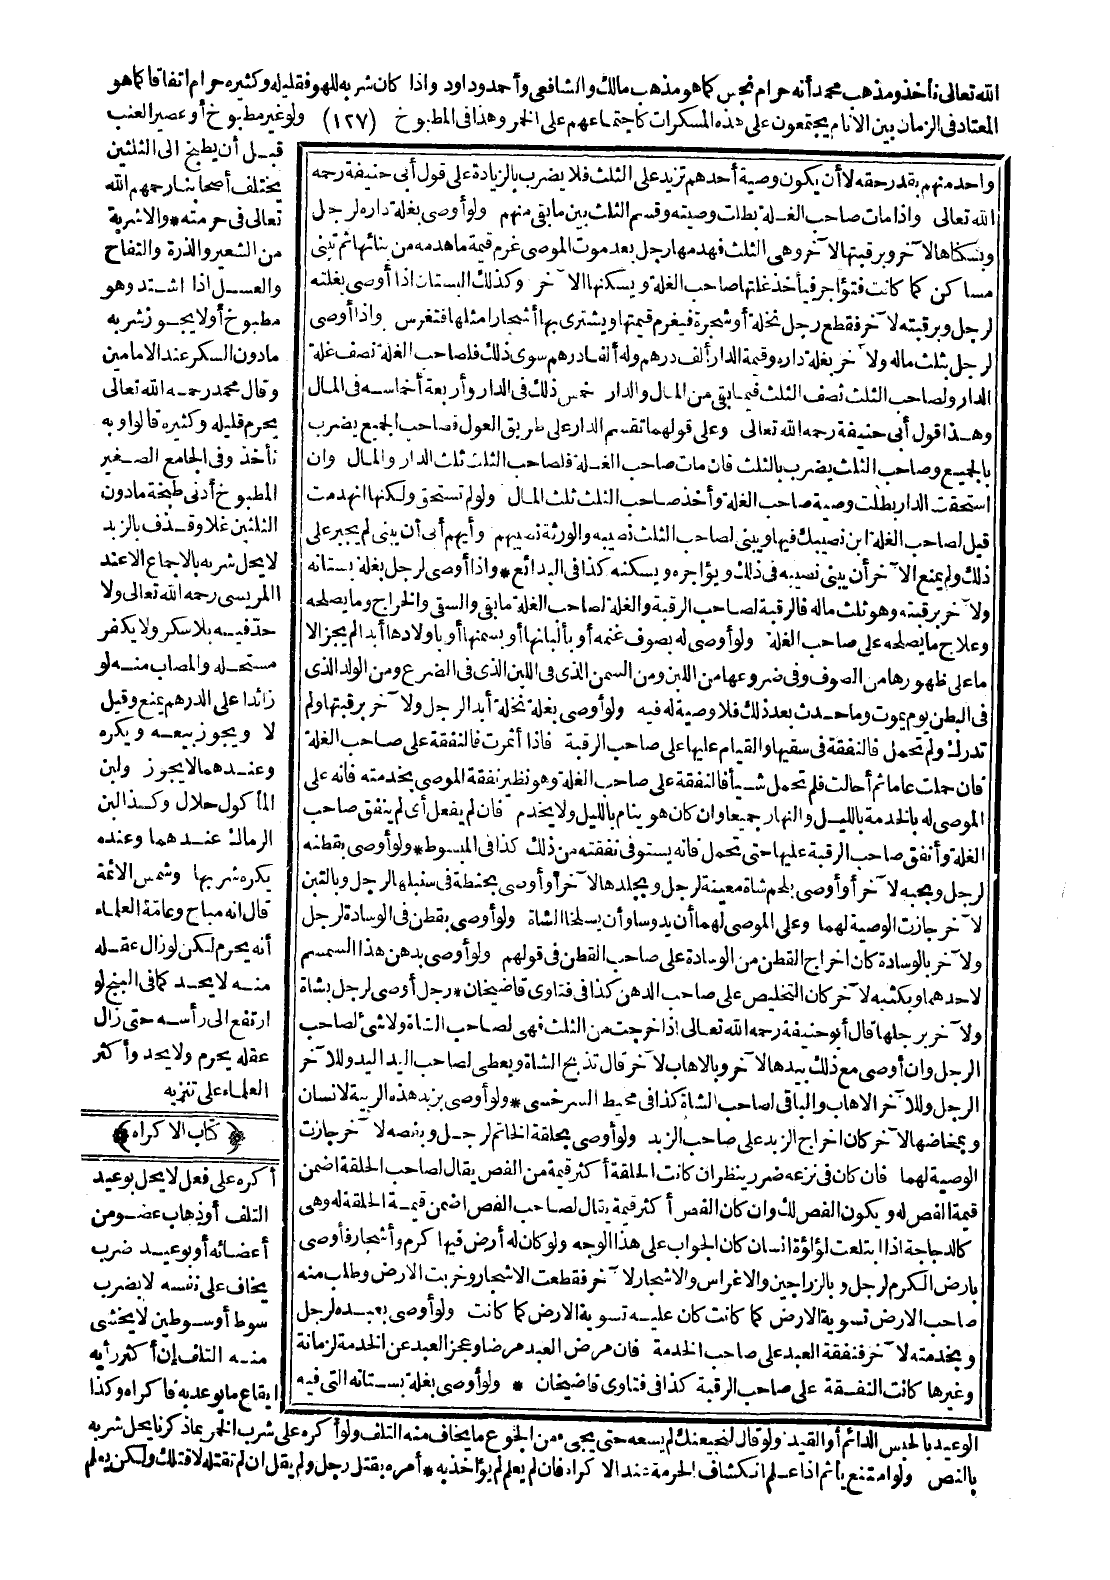 الله تعالى نأخذ ومذهب محمد أنه حرام نجس كما هو مذهب مالك والشافعى وأحمد وداود واذا كان شربه للهو فقليله وكثيره حرام اتفاقا كما هو
المعتاد فى الزمان بين الانام يجتمعون على هذه المسكرات كاجتماعهم على الخمر وهذا فى المطبوخ (١٢٧) ولو غير مطبوخ أو عصير العنب
قبل أن يطبخ الى الثلثين
يختلف أصحابنا رحمهم الله
تعالى فى حرمته * والاشربة
من الشعير والذرة والتفاح
والعسل اذا اشتد وهو
مطبوخ أولا يجوز شربه
مادون السكر عند الامامين
وقال محمد رحمه الله تعالى
يحرم قليله وكثيره قالوا وبه
نأخذ وفى الجامع الصغير
المطبوخ أدنى طبخة مادون
الثلثين غلا وقذف بالزبد
لايحل شربه بالاجماع الاعند
المريسى رحمه الله تعالى ولا
حد فيه بلا سكر ولا يكفر
مستحله والمصاب منه لو
زائدا على الدرهم يمنع وقيل
لا ويجوز بيعه ويكره
وعندهما لايجوز ولبن
المأكول حلال وكذا لبن
الرماك عندهما وعنده
يكره شربها وشمس الائمة
قال انه مباح وعامة العلماء
أنه يحرم لكن لو زال عقله
منه لا يحد كما فى البنج لو
ارتفع الى رأسه حتى زال
عقله يحرم ولا يحد وأكثر
العلماء على تنزيه
﴿كتاب الاكراه﴾
أكره على فعل لايحل بوعيد
التلف أو ذهاب عضو من
أعضائه أو بوعيد ضرب
يخاف على نفسه لا بضرب
سوط أو سوطين لا يخشى
منه التلف ان أكثر رأيه
ايقاع مايوعد به فاكراه وكذا
واحد منهم بقدر حقه لا أن يكون وصية أحدهم تزيد على الثلث فلا يضرب بالزيادة على قول أبى حنيفة رحمه
الله تعالى واذا مات صاحب الغلة بطلت وصيته وقسم الثلث بين مابقى منهم ولو أوصى بغلة داره لرجل
وبسكناها لآخر وبرقبتها لآخر وهى الثلث فهدمها رجل بعد موت الموصى غرم قيمة ماهدمه من بنائها ثم تبنى
مساكن كما كانت فتؤاجر فيأخذ غلتها صاحب الغلة ويسكنها الآخر وكذلك البستان اذا أوصى بغلته
لرجل وبرقبته لآخر فقطع رجل نخلة أو شجرة فيغرم قيمتها ويشترى بها أشجارا مثلها فتغرس واذا أوصى
لرجل بثلث ماله ولآخر بغلة داره وقيمة الدار ألف درهم وله ألفا درهم سوى ذلك فلصاحب الغلة نصف غلة
الدار ولصاحب الثلث نصف الثلث فيما بقى من المال والدار خمس ذلك فى الدار وأربعة أخماسه فى المال
وهذا قول أبى حنيفة رحمه الله تعالى وعلى قولهما تقسم الدار على طريق العول فصاحب الجميع يضرب
بالجميع وصاحب الثلث يضرب بالثلث فان مات صاحب الغلة فلصاحب الثلث ثلث الدار والمال وان
استحقت الدار بطلت وصية صاحب الغلة وأخذ صاحب الثلث ثلث المال ولو لم تستحق ولكنها انهدمت
قيل لصاحب الغلة ابن نصيبك فيها ويبنى لصاحب الثلث نصيبه والورثة نصيبهم وأيهم أبى أن يبنى لم يجبر على
ذلك ولم يمنع الآخر أن يبنى نصيبه فى ذلك ويؤاجره ويسكنه كذا فى البدائع * واذا أوصى لرجل بغلة بستانه
ولآخر برقبته وهو ثلث ماله فالرقبة لصاحب الرقبة والغلة لصاحب الغلة مابقى والسقى والخراج ومايصلحه
وعلاج مايصلحه على صاحب الغلة ولو أوصى له بصوف غنمه أو بألبانها أو بسمنها أو بأولادها أبدا لم يجز الا
ماعلى ظهورها من الصوف وفى ضروعها من اللبن ومن السمن الذى فى اللبن الذى فى الضرع ومن الولد الذى
فى البطن يوم يموت وماحدث بعد ذلك فلا وصية له فيه ولو أوصى بغلة نخلة أبدا لرجل ولآخر برقبتها ولم
تدرك ولم تحمل فالنفقة فى سقيها والقيام عليها على صاحب الرقبة فاذا أثمرت فالنفقة على صاحب الغلة
فان حملت عاما ثم أحالت فلم تحمل شيأ فالنفقة على صاحب الغلة وهو نظير نفقة الموصى بخدمته فانه على
الموصى له بالخدمة بالليل والنهار جميعا وان كان هو ينام بالليل ولا يخدم فان لم يفعل أى لم ينفق صاحب
الغلة وأنفق صاحب الرقبة عليها حتى تحمل فانه يستوفى نفقته من ذلك كذا فى المبسوط * ولو أوصى بقطنه
لرجل وبحبه لآخر أو أوصى بلحم شاة معينة لرجل وبجلدها لآخر أو أوصى بحنطة فى سنبلها لرجل وبالتبن
لآخر جازت الوصية لهما وعلى الموصى لهما أن يدوسا وأن يسلخا الشاة ولو أوصى بقطن فى الوسادة لرجل
ولآخر بالوسادة كان اخراج القطن من الوسادة على صاحب القطن فى قولهم ولو أوصى بدهن هذا السمسم
لاحدهما وبكسبه لآخر كان التخليص على صاحب الدهن كذا فى فتاوى قاضيخان * رجل أوصى لرجل بشاة
ولآخر برجلها قال أبو حنيفة رحمه الله تعالى اذا خرجت من الثلث فهى لصاحب الشاة ولا شئ لصاحب
الرجل وان أوصى مع ذلك بيدها لآخر وبالاهاب لآخر قال تذبح الشاة ويعطى لصاحب اليد اليد وللآخر
الرجل وللآخر الاهاب والباقى لصاحب الشاة كذا فى محيط السرخسى * ولو أوصى بزبد هذه الربية لانسان
وبمخاضها لآخر كان اخراج الزبد على صاحب الزبد ولو أوصى بحلقة الخاتم لرجل وبفصه لآخر جازت
الوصية لهما فان كان فى نزعه ضرر ينظر ان كانت الحلقة أكثر قيمة من الفص يقال لصاحب الحلقة اضمن
قيمة الفص له ويكون الفص لك وان كان الفص أكثر قيمة يقال لصاحب الفص اضمن قيمة الحلقة له وهى
كالدجاجة اذا ابتلعت لؤلؤة انسان كان الجواب على هذا الوجه ولو كان له أرض فيها كرم وأشجار فأوصى
بارض الكرم لرجل وبالزراجين والاغراس والاشجار لآخر فقطعت الاشجار وخربت الارض وطلب منه
صاحب الارض تسوية الارض كما كانت كان عليه تسوية الارض كما كانت ولو أوصى بعبده لرجل
وبخدمته لآخر فنفقة العبد على صاحب الخدمة فان مرض العبد مرضا وعجز العبد عن الخدمة لزمانة
وغيرها كانت النفقة على صاحب الرقبة كذا فى فتاوى قاضيخان * ولو أوصى بغلة بستانه التى فيه
الوعيد بالحبس الدائم أو القيد ولو قال لنجيعنك لم يسعه حتى يجىء من الجوع مايخاف منه التلف ولو أكره على شرب الخمر بما ذكرنا يحل شربه
بالنص ولو امتنع يأثم اذا علم انكشاف الحرمة عند الاكراه فان لم يعلم لم يؤاخذ به * أمره بقتل رجل ولم يقل ان لم تقتله لاقتلك ولكن يعلم